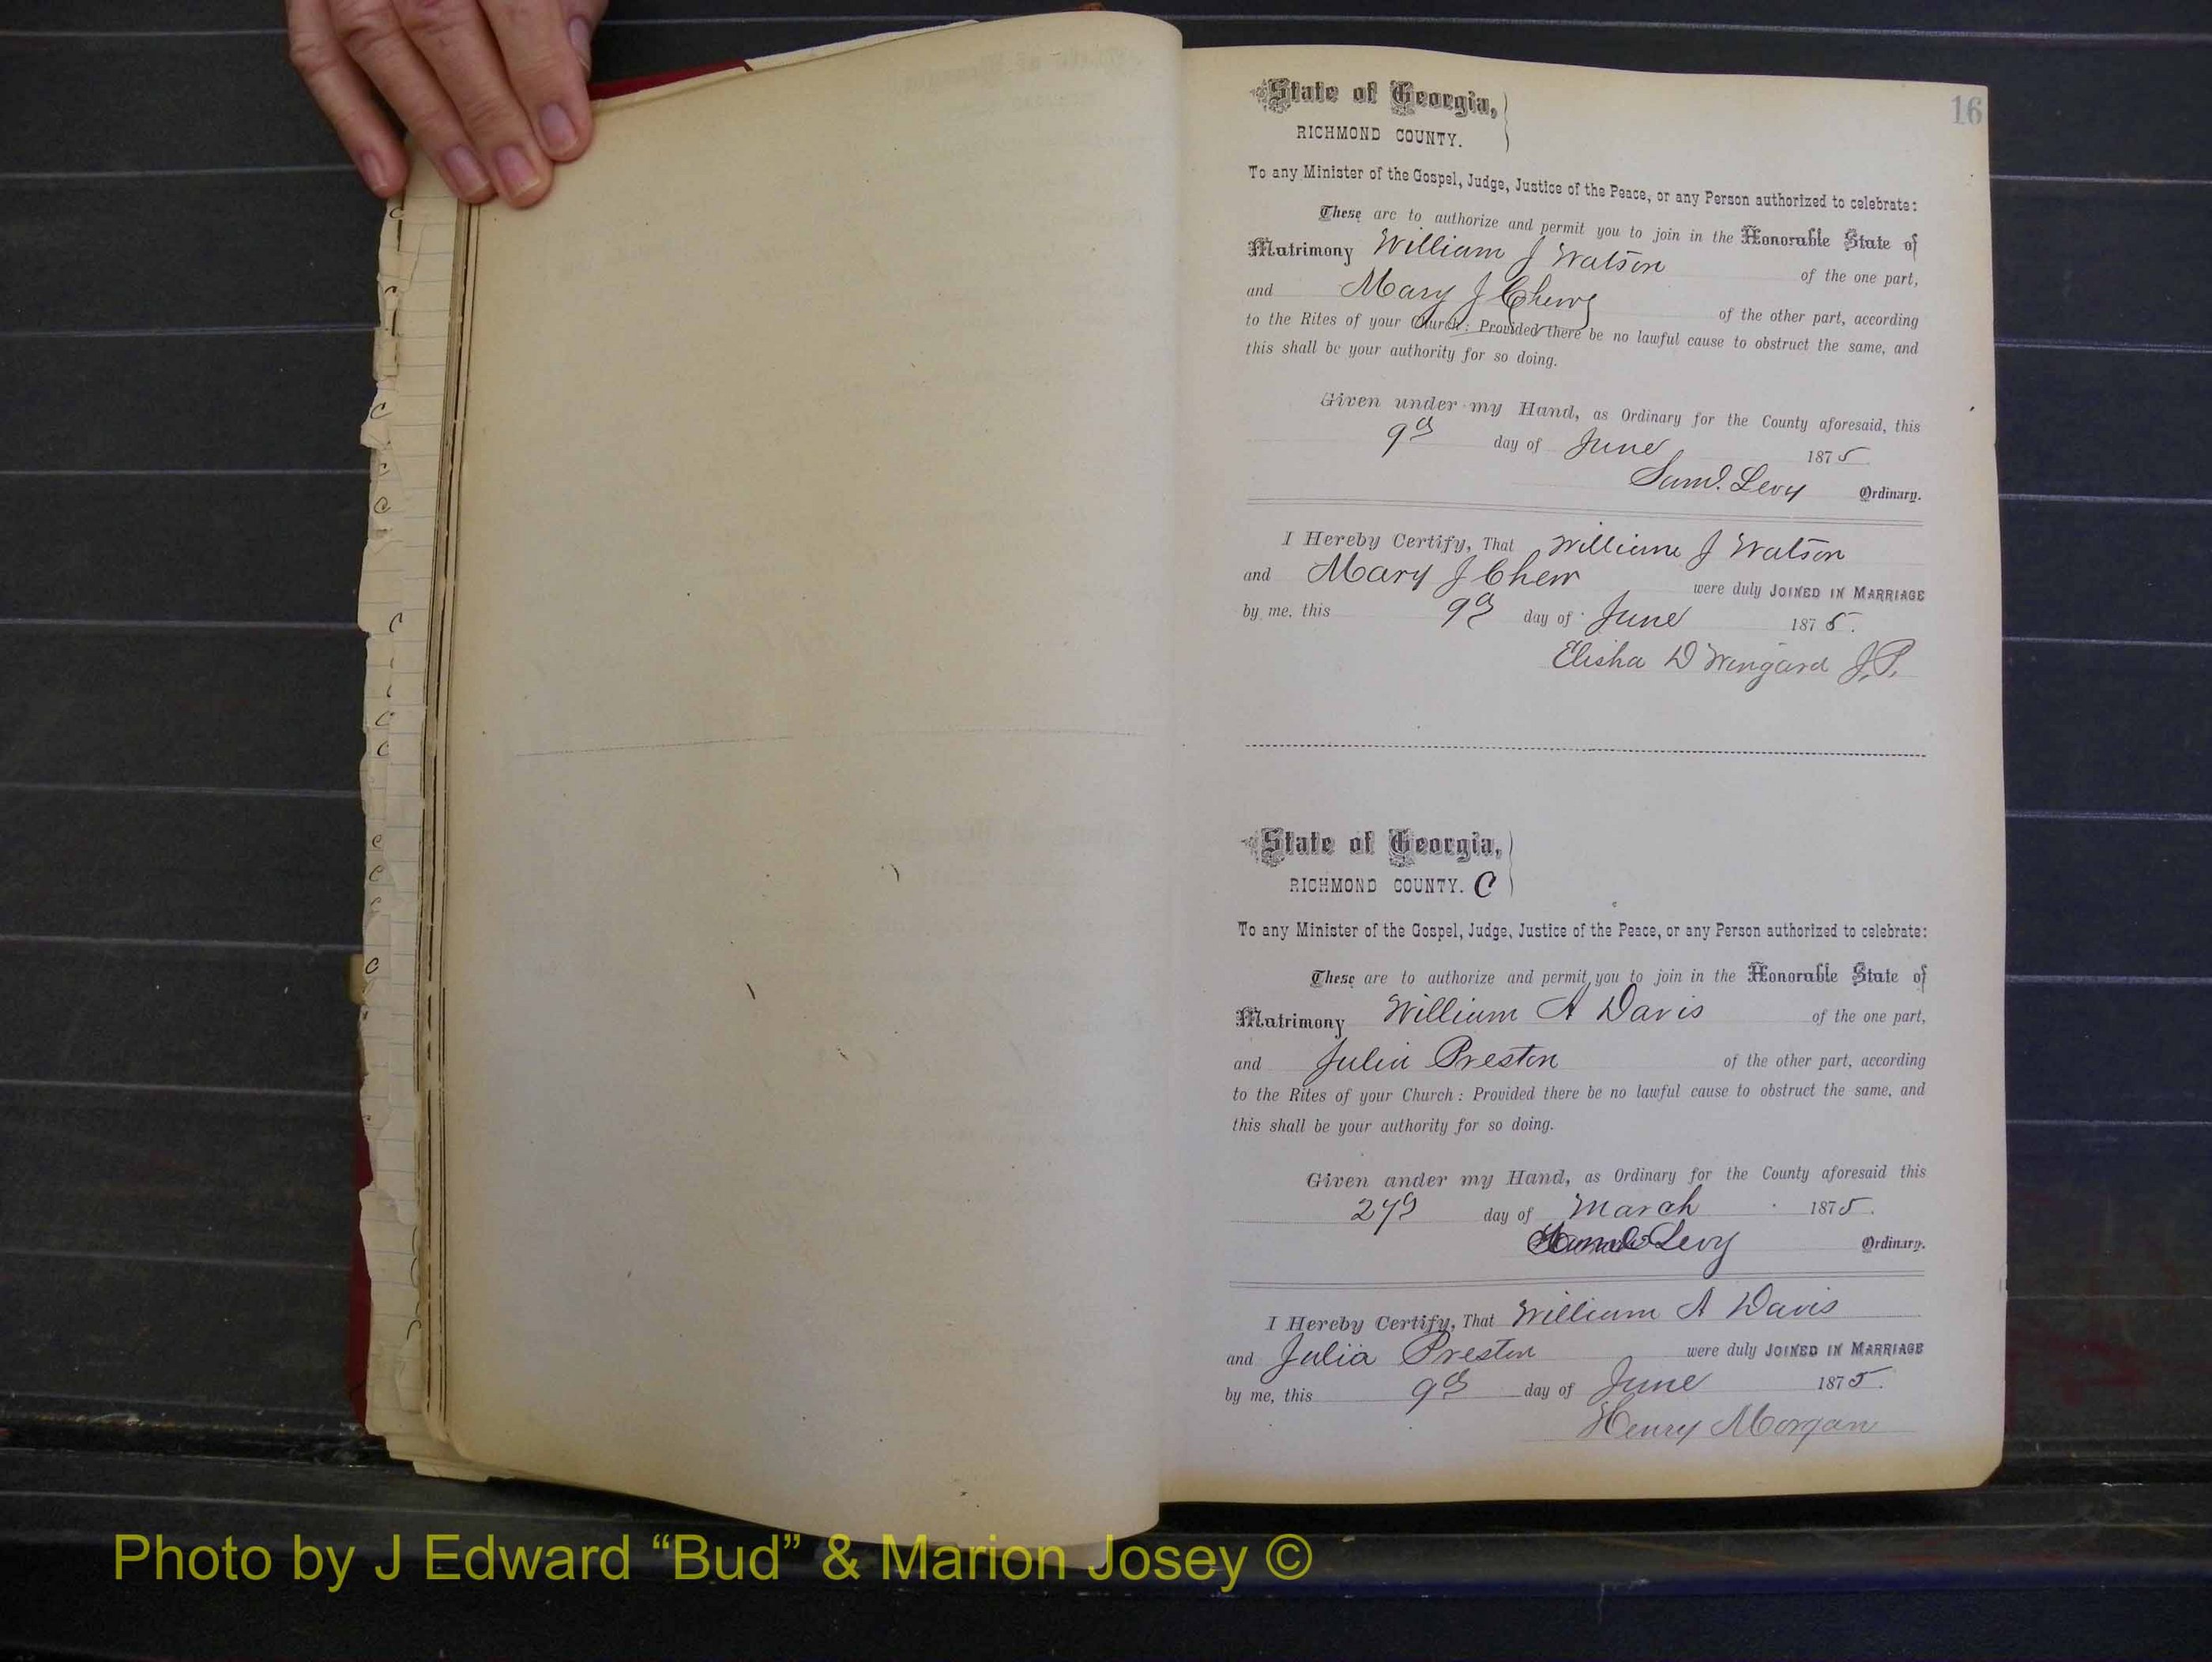 16
State of Georgia,
RICHMOND COUNTY.
To any Minister of the Gospel, Judge, Justice of the Peace, or any Person authorized to celebrate:
These are to authorize and permit you to join in the Honorable State of
Matrimony William J Watson of the one part,
and Mary J Chew of the other part, according
to the Rites of your Church: Provided there be no lawful cause to obstruct the same, and
this shall be your authority for so doing.
Given under my Hand, as Ordinary for the County aforesaid, this
9th day of June 1875
Saml. Levy Ordinary.
I Hereby Certify, That William J Watson
and Mary J Chew were duly JOINED IN MARRIAGE
by me, this 9th day of June 1875.
Elisha D Wingard J.P.
State of Georgia,
RICHMOND COUNTY. C
To any Minister of the Gospel, Judge, Justice of the Peace, or any Person authorized to celebrate:
These are to authorize and permit you to join in the Honorable State of
Matrimony William A Davis of the one part,
and Julia Preston of the other part, according
to the Rites of your Church: Provided there be no lawful cause to obstruct the same, and
this shall be your authority for so doing.
Given under my Hand, as Ordinary for the County aforesaid this
day of March 1875.
Levy Ordinary.
I Hereby Certify, That William A Davis
and Julia Preston were duly JOINED IN MARRIAGE
by me, this 9th day of June 1875.
Henry Morgan
Photo by J Edward “Bud” & Marion Josey ©